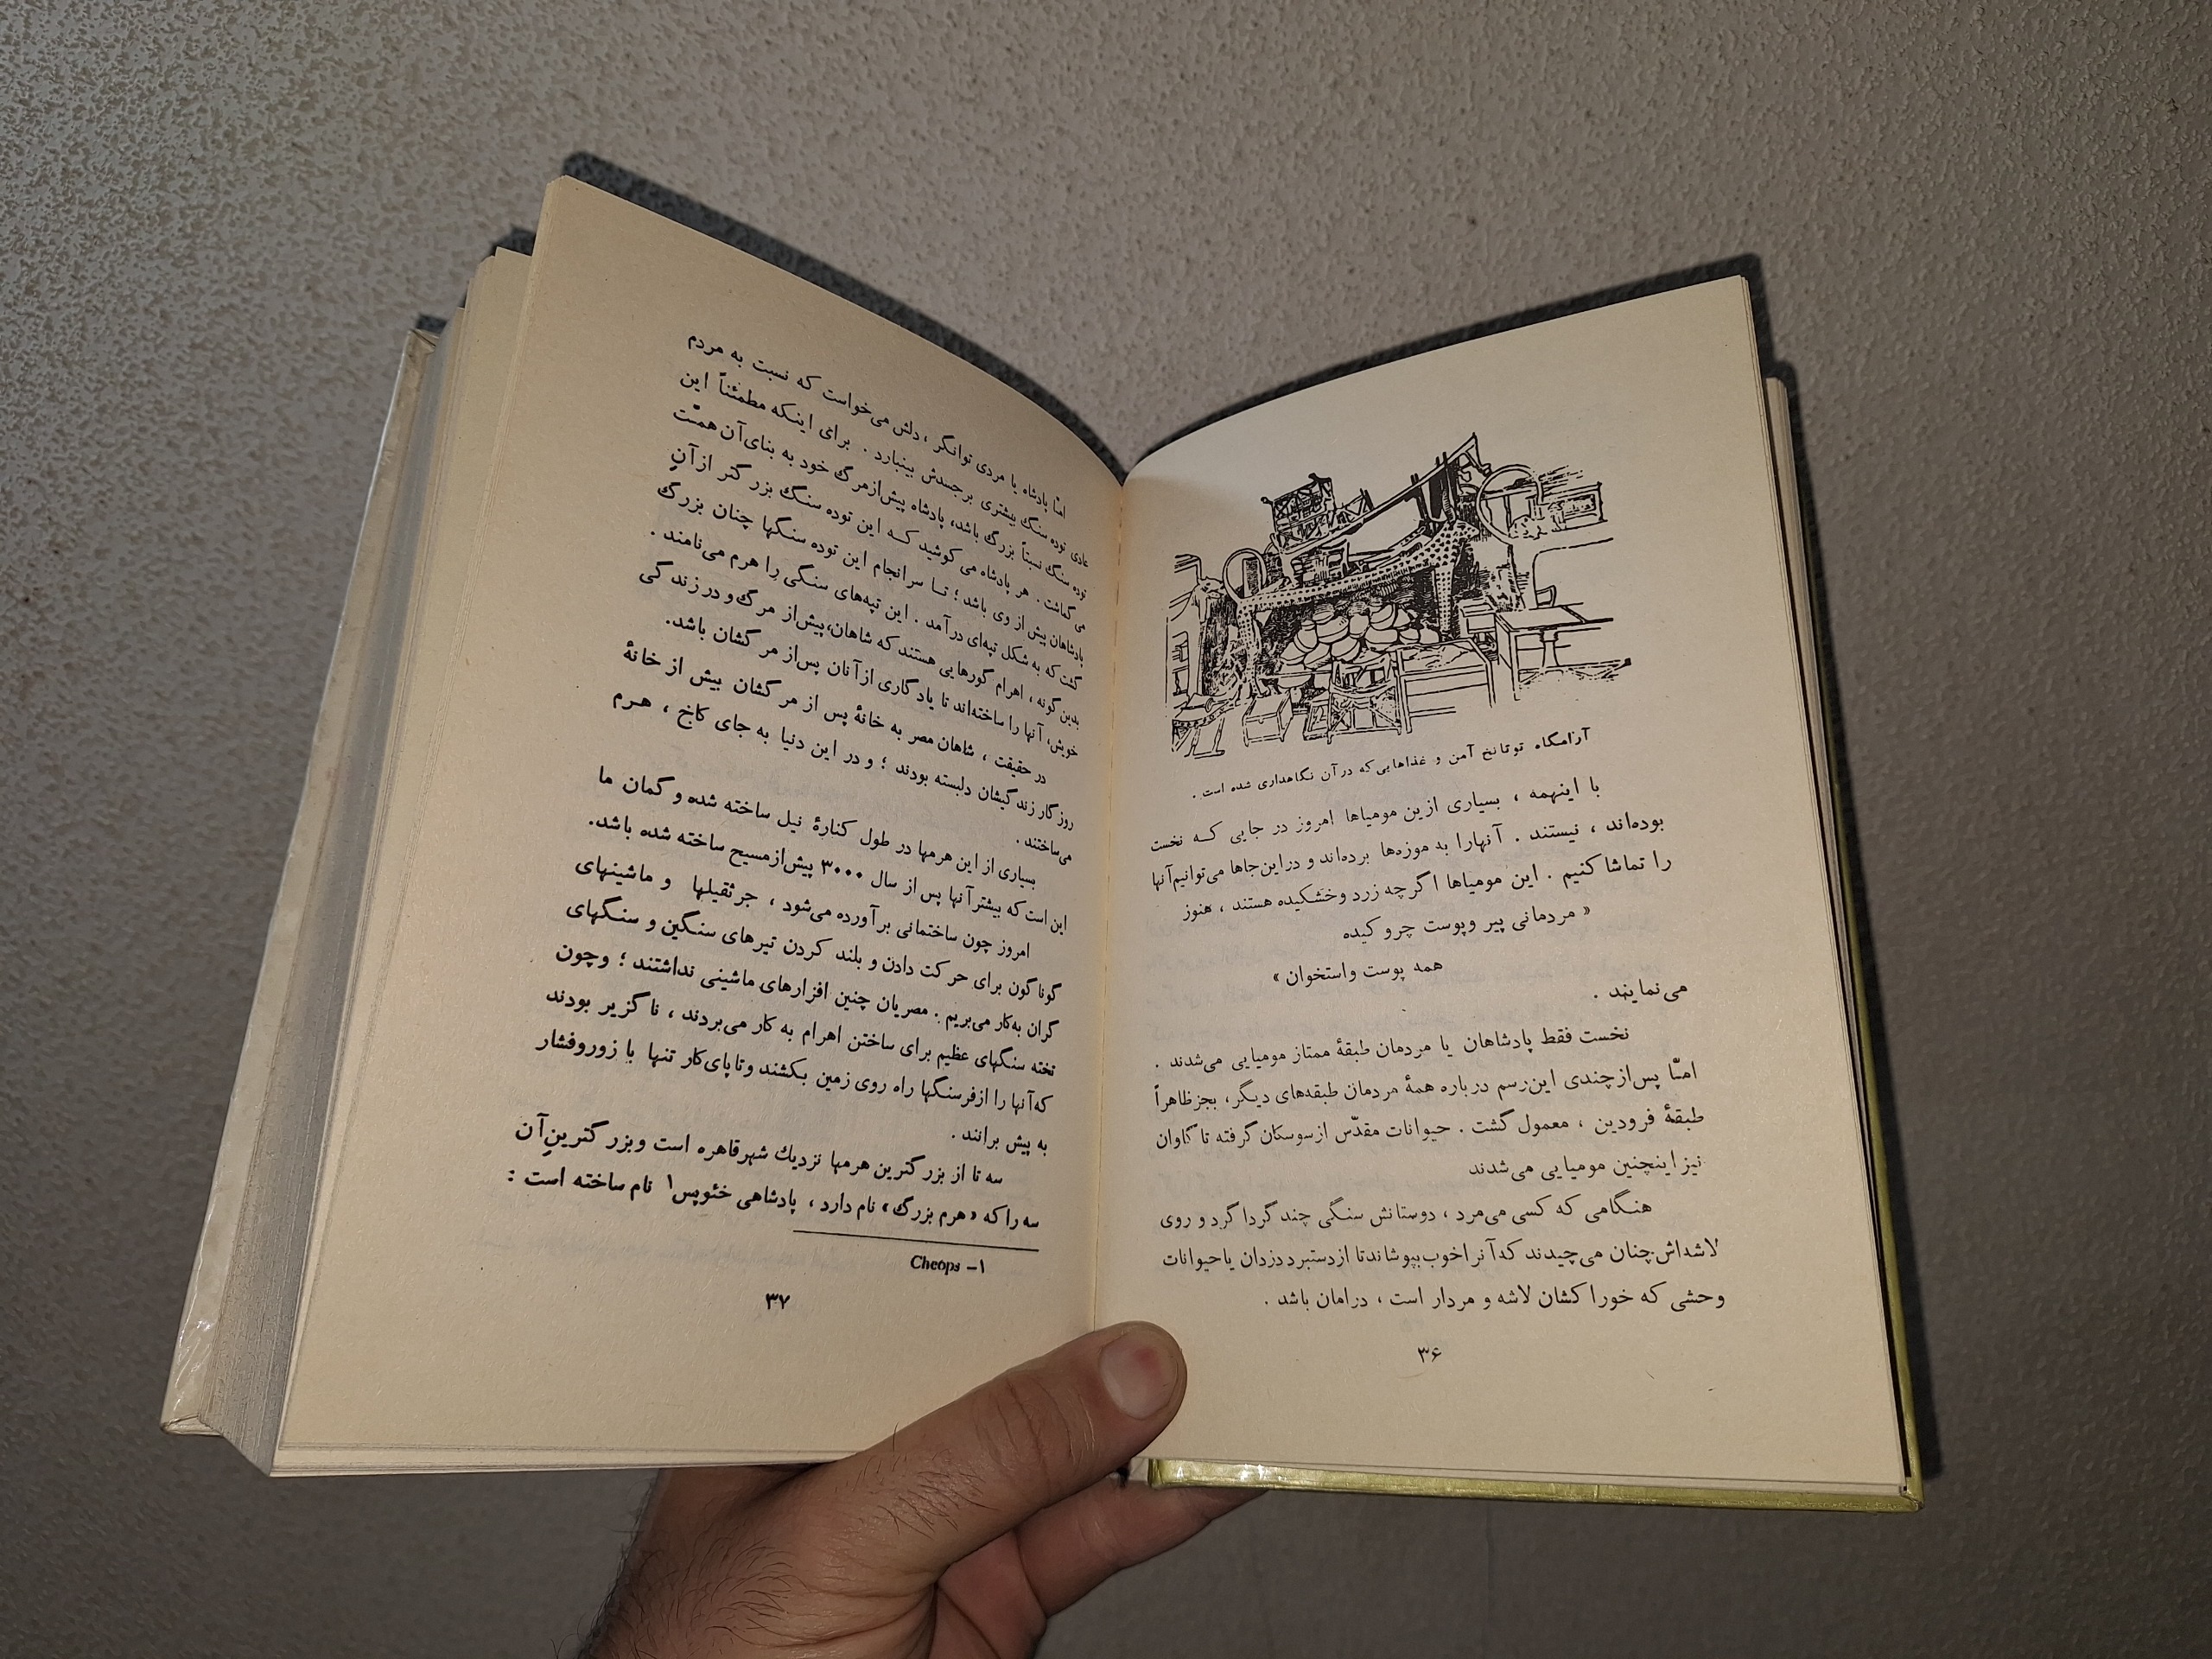 آرامگاه توتانخ آمن و غذاهایی که در آن نگاهداری شده است .
با اینهمه ، بسیاری ازین مومیاها امروز در جایی کـه نخست
بوده‌اند ، نیستند . آنهارا به موزه‌ها برده‌اند و دراین‌جاها می‌توانیم آنها
را تماشا کنیم . این مومیاها اگرچه زرد وخشکیده هستند ، هنوز
« مردمانی پیر وپوست چروکیده
همه پوست واستخوان »
می‌نمایند .
نخست فقط پادشاهان یا مردمان طبقهٔ ممتاز مومیایی می‌شدند .
امـّا پس‌ازچندی این‌رسم درباره همهٔ مردمان طبقه‌های دیگر، بجزظاهراً
طبقهٔ فرودین ، معمول گشت . حیوانات مقدّس ازسوسکان گرفته تا گاوان
نیز اینچنین مومیایی می‌شدند
هنگامی که کسی می‌مرد ، دوستانش سنگی چند گرداگرد و روی
لاشه‌اش‌چنان می‌چیدند که‌آنراخوب‌بپوشاندتا ازدستبرد دزدان یاحیوانات
وحشی که خوراکشان لاشه و مردار است ، درامان باشد .
۳۶
امـّا پادشاه یا مردی توانگر ، دلش می‌خواست که نسبت به مردم
عادی توده سنگ بیشتری برجسدش بینبارد . برای اینکه مطمئناً این
توده سنگ نسبتاً بزرگ باشد، پادشاه پیش‌ازمرگ خود به بنای‌آن همـّت
می گماشت . هر پادشاه می کوشید کـه این توده سنگ بزرگتر ازآنِ
پادشاهان پیش از وی باشد ؛ تـا سرانجام این توده سنگها چنان بزرگ
گشت که به شکل تپه‌ای درآمد . این تپه‌های سنگی را هرم می‌نامند .
بدین گونه ، اهرام گورهایی هستند که شاهان،پیش‌از مرگ‌و در زندگی
خویش، آنها را ساخته‌اند تا یادگاری ازآنان پس‌از مرگشان باشد.
در حقیقت ، شاهان مصر به خانهٔ پس از مرگشان بیش از خانهٔ
روزگار زندگیشان دلبسته بودند ؛ و در این دنیا به جای کاخ ، هـرم
می‌ساختند .
بسیاری از این هرمها در طول کنارهٔ نیل ساخته شده و گمان ما
این است که بیشترآنها پس از سال ۳۰۰۰ پیش‌ازمسیح ساخته شده باشد.
امروز چون ساختمانی برآورده می‌شود ، جرثقیلها و ماشینهای
گوناگون برای حرکت دادن و بلند کردن تیرهای سنگین و سنگهای
گران به‌کار می‌بریم . مصریان چنین افزارهای ماشینی نداشتند ؛ وچون
تخته سنگهای عظیم برای ساختن اهرام به کار می‌بردند ، ناگزیر بودند
که‌آنها را ازفرسنگها راه روی زمین بکشند وتا پای‌کار تنها با زوروفشار
به پیش برانند .
سه تا از بزرگترین هرمها نزدیك شهرقاهره است وبزرگترینِ‌آن
سه راکه «هرم بزرگ» نام دارد ، پادشاهی خئوپس۱ نام ساخته است :
۱- Cheops
۳۷